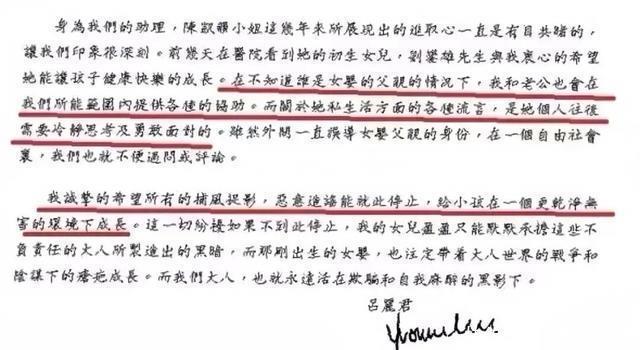 身為我們的助理，陳凱韻小姐這幾年來所展現出的進取心一直是有目共睹的，
讓我們印象很深刻。前幾天在醫院看到她的初生女兒，劉鑾雄先生與我衷心的希望
她能讓孩子健康快樂的成長。在不知道誰是女嬰的父親的情況下，我和老公也會在
我們所能範圍內提供各種的協助。而關於她私生活方面的各種流言，是她個人往後
需要冷靜思考及勇敢面對的。雖然外間一直誤導女嬰父親的身份，在一個自由社會
裏，我們也就不便過問或評論。
我誠摯的希望所有的捕風捉影，惡意造謠能就此停止，給小孩在一個更乾淨無
害的環境下成長。這一切紛擾如果不到此停止，我的女兒盈盈只能默默承擔這些不
負責任的大人所製造出的黑暗，而那剛出生的女嬰，也注定帶着大人世界的戰爭和
陰謀下的瘡疤成長。而我們大人，也就永遠活在欺騙和自我麻醉的黑影下。
呂麗君